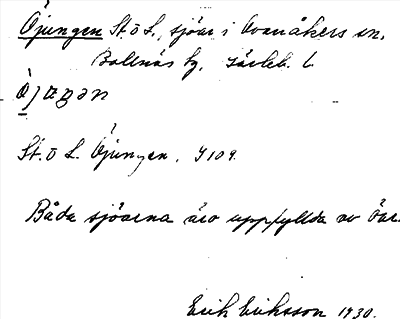 Öjungen St. o L., sjöar i Ovanåkers sn.
Bollnäs tg. Gävleb. l.
St. o L. Öjungen. J109.
Båda sjöarna äro uppfyllda av öar.
Erik Eriksson 1930.